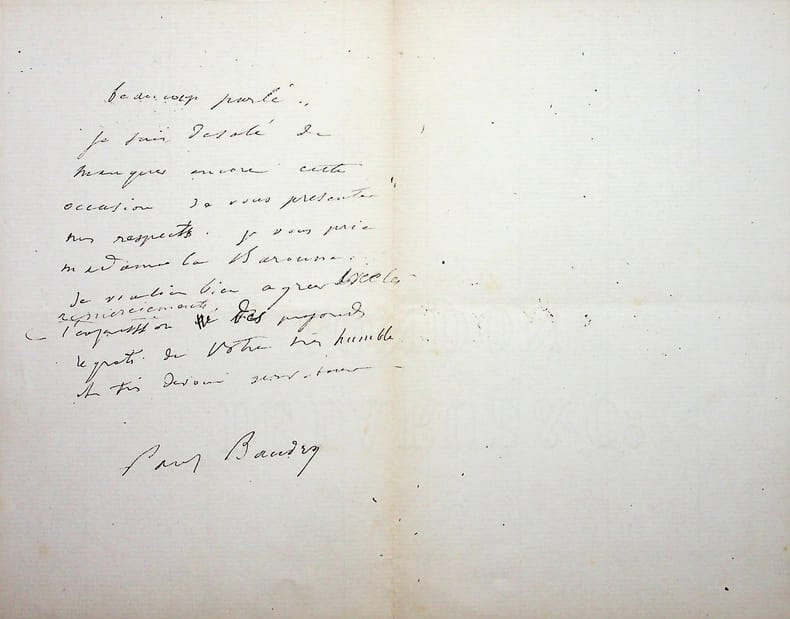 beaucoup parlé..
je suis desolé de
manquer encore cette
occasion de vous presenter
mes respects. je vous prie
madame la Baronne.
de vouloir bien agréer avec les
remerciements
l'expression des profonds
regrets de votre très humble
et très devoué serviteur
Paul Baudry